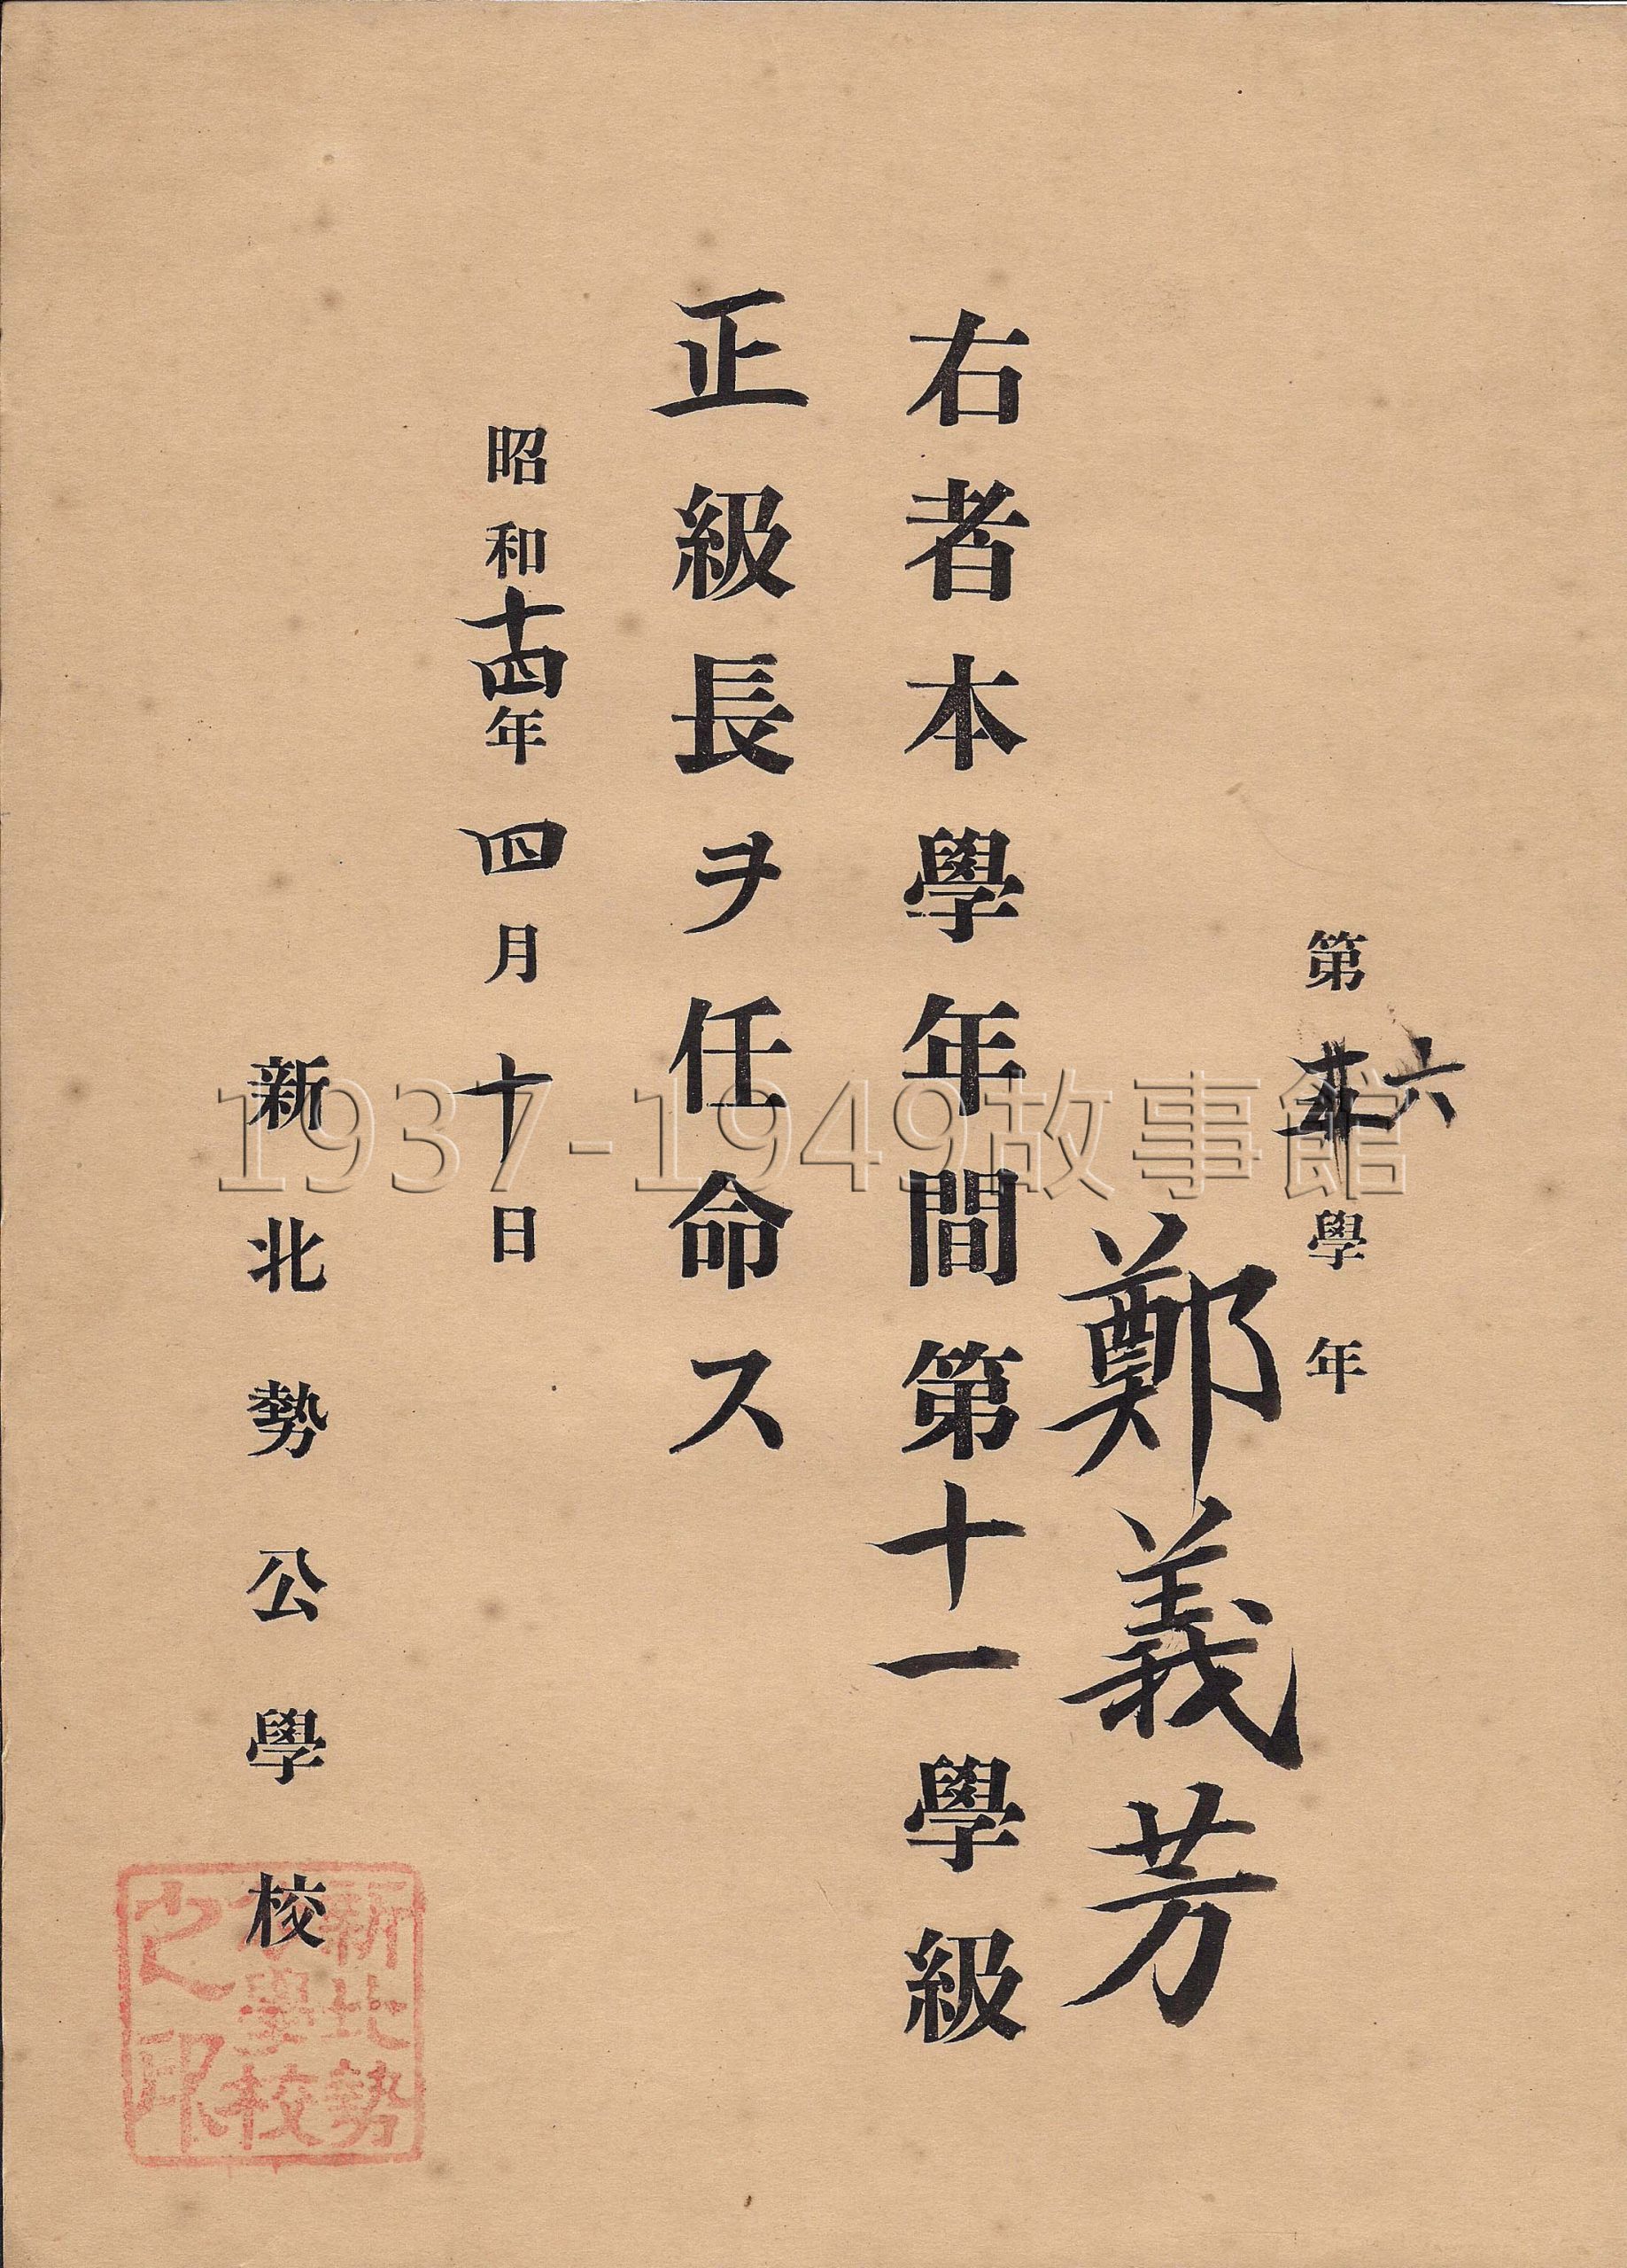 第六學年
鄭義芳
右者本學年間第十一學級
正級長ヲ任命ス
昭和十四年四月十日
新北勢公學校
新北勢
公學校
之印
1937-1949故事館